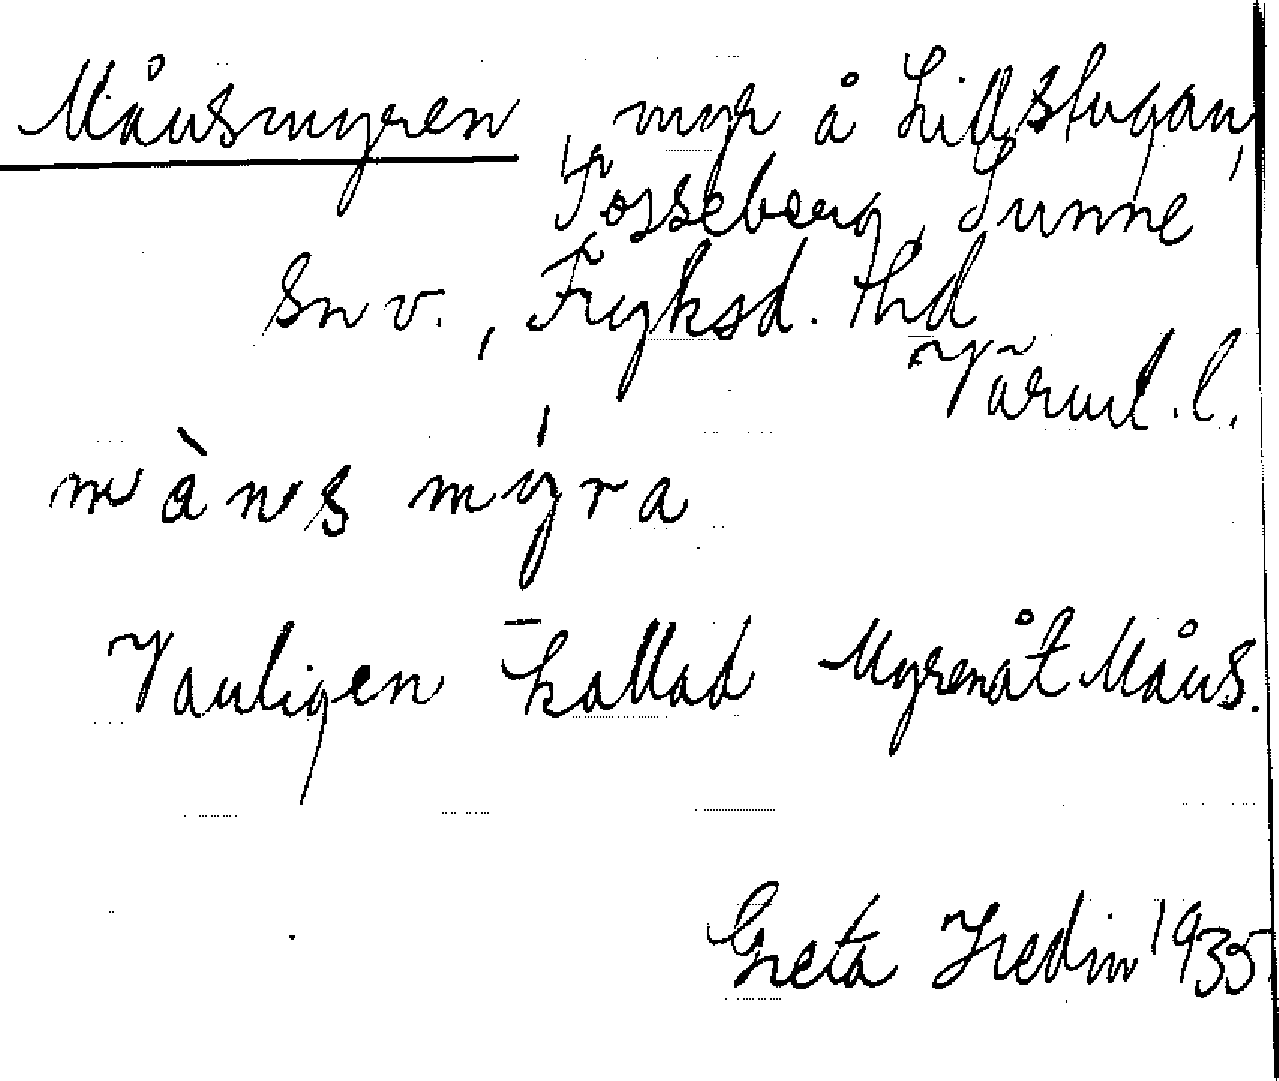 Månsmyren, myr å Lillstugan,
Fosseberg, Sunne
sn v., Fryksd. thd
Värml. l.
màns mýra
Vanligen kallad Myrenåt Måns.
Greta Hedin 1935.